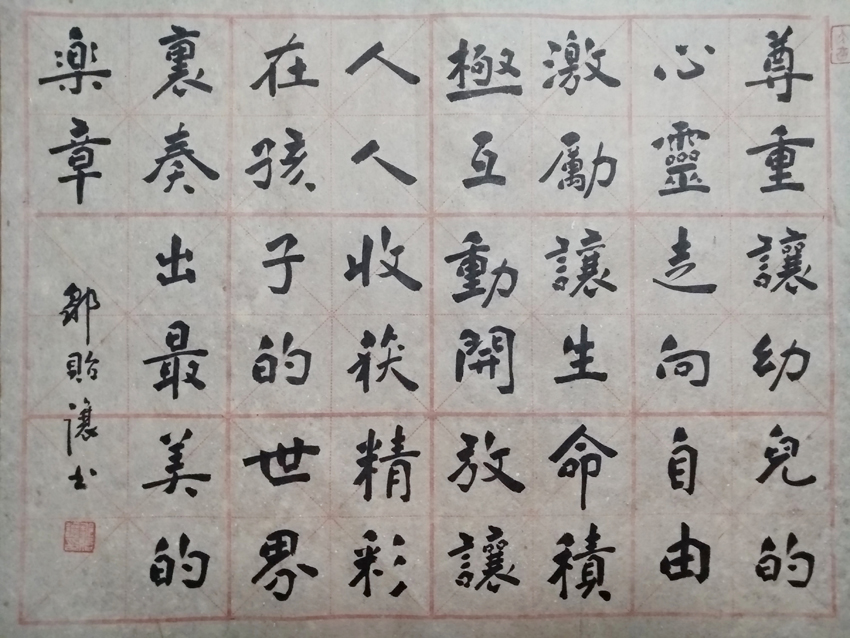 尊重讓幼兒的
心靈走向自由
激勵讓生命積
極互動開放讓
人人收获精彩
在孩子的世界
裏奏出最美的
楽章
鄒貽讓书